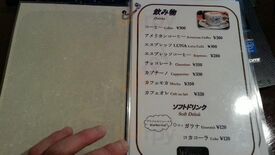 飲み物
Drinks
コーヒー Coffee ¥300
アメリカンコーヒー American Coffee ¥300
エスプレッソ LUNA Luna Caffè ¥300
エスプレッソコーヒー Espresso ¥300
チョコレート Chocolate ¥350
カプチーノ Cappuccino ¥350
カフェモカ Mocha ¥350
カフェオレ Café au lait ¥350
ソフトドリンク
Soft Drink
ガラナ Guaraná ¥120
コカコーラ Coke ¥120